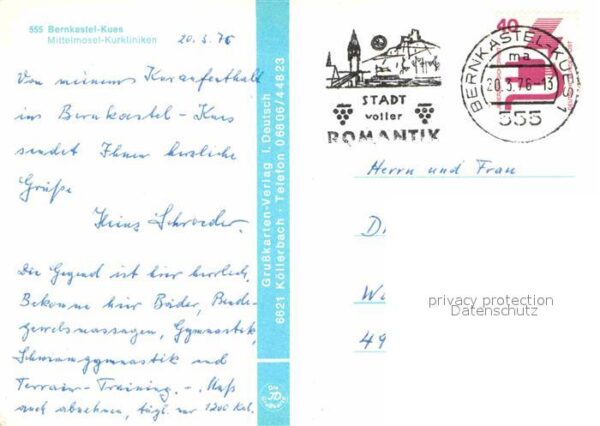 555 Bernkastel-Kues
Mittelmosel-Kurkliniken
20.3.76
Von meinem Kuraufenthalt
in Bernkastel-Kues
sendet Ihnen herzliche
Grüße
Heinz Schroeder.
Die Gegend ist hier herrlich.
Bekomme hier Bäder, Binde-
gewebsmassagen, Gymnastik,
Schwimmgymnastik und
Terrain-Training. -. Muß
auch abnehmen, tägl. nur 1200 Kal.
Grußkarten-Verlag I. Deutsch
6621 Köllerbach · Telefon 06806/44823
STADT
voller
ROMANTIK
40
BERNKASTEL-KUES 1
ma
20.3.76-13
555
Herrn und Frau
D.
W
49
privacy protection
Datenschutz